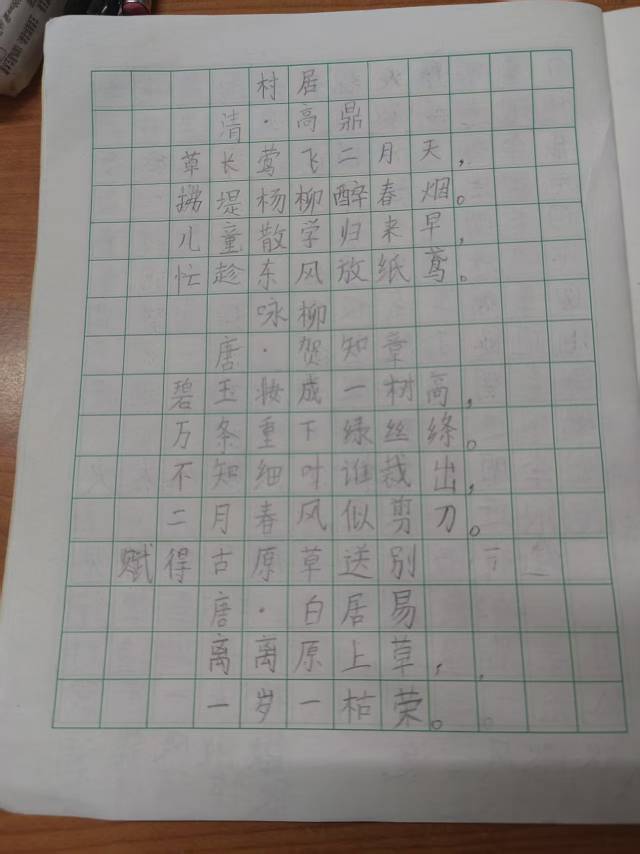 村居
清·高鼎
草长莺飞二月天，
拂堤杨柳醉春烟。
儿童散学归来早，
忙趁东风放纸鸢。
咏柳
唐·贺知章
碧玉妆成一树高，
万条垂下绿丝绦。
不知细叶谁裁出，
二月春风似剪刀。
赋得古原草送别
唐·白居易
离离原上草，
一岁一枯荣。